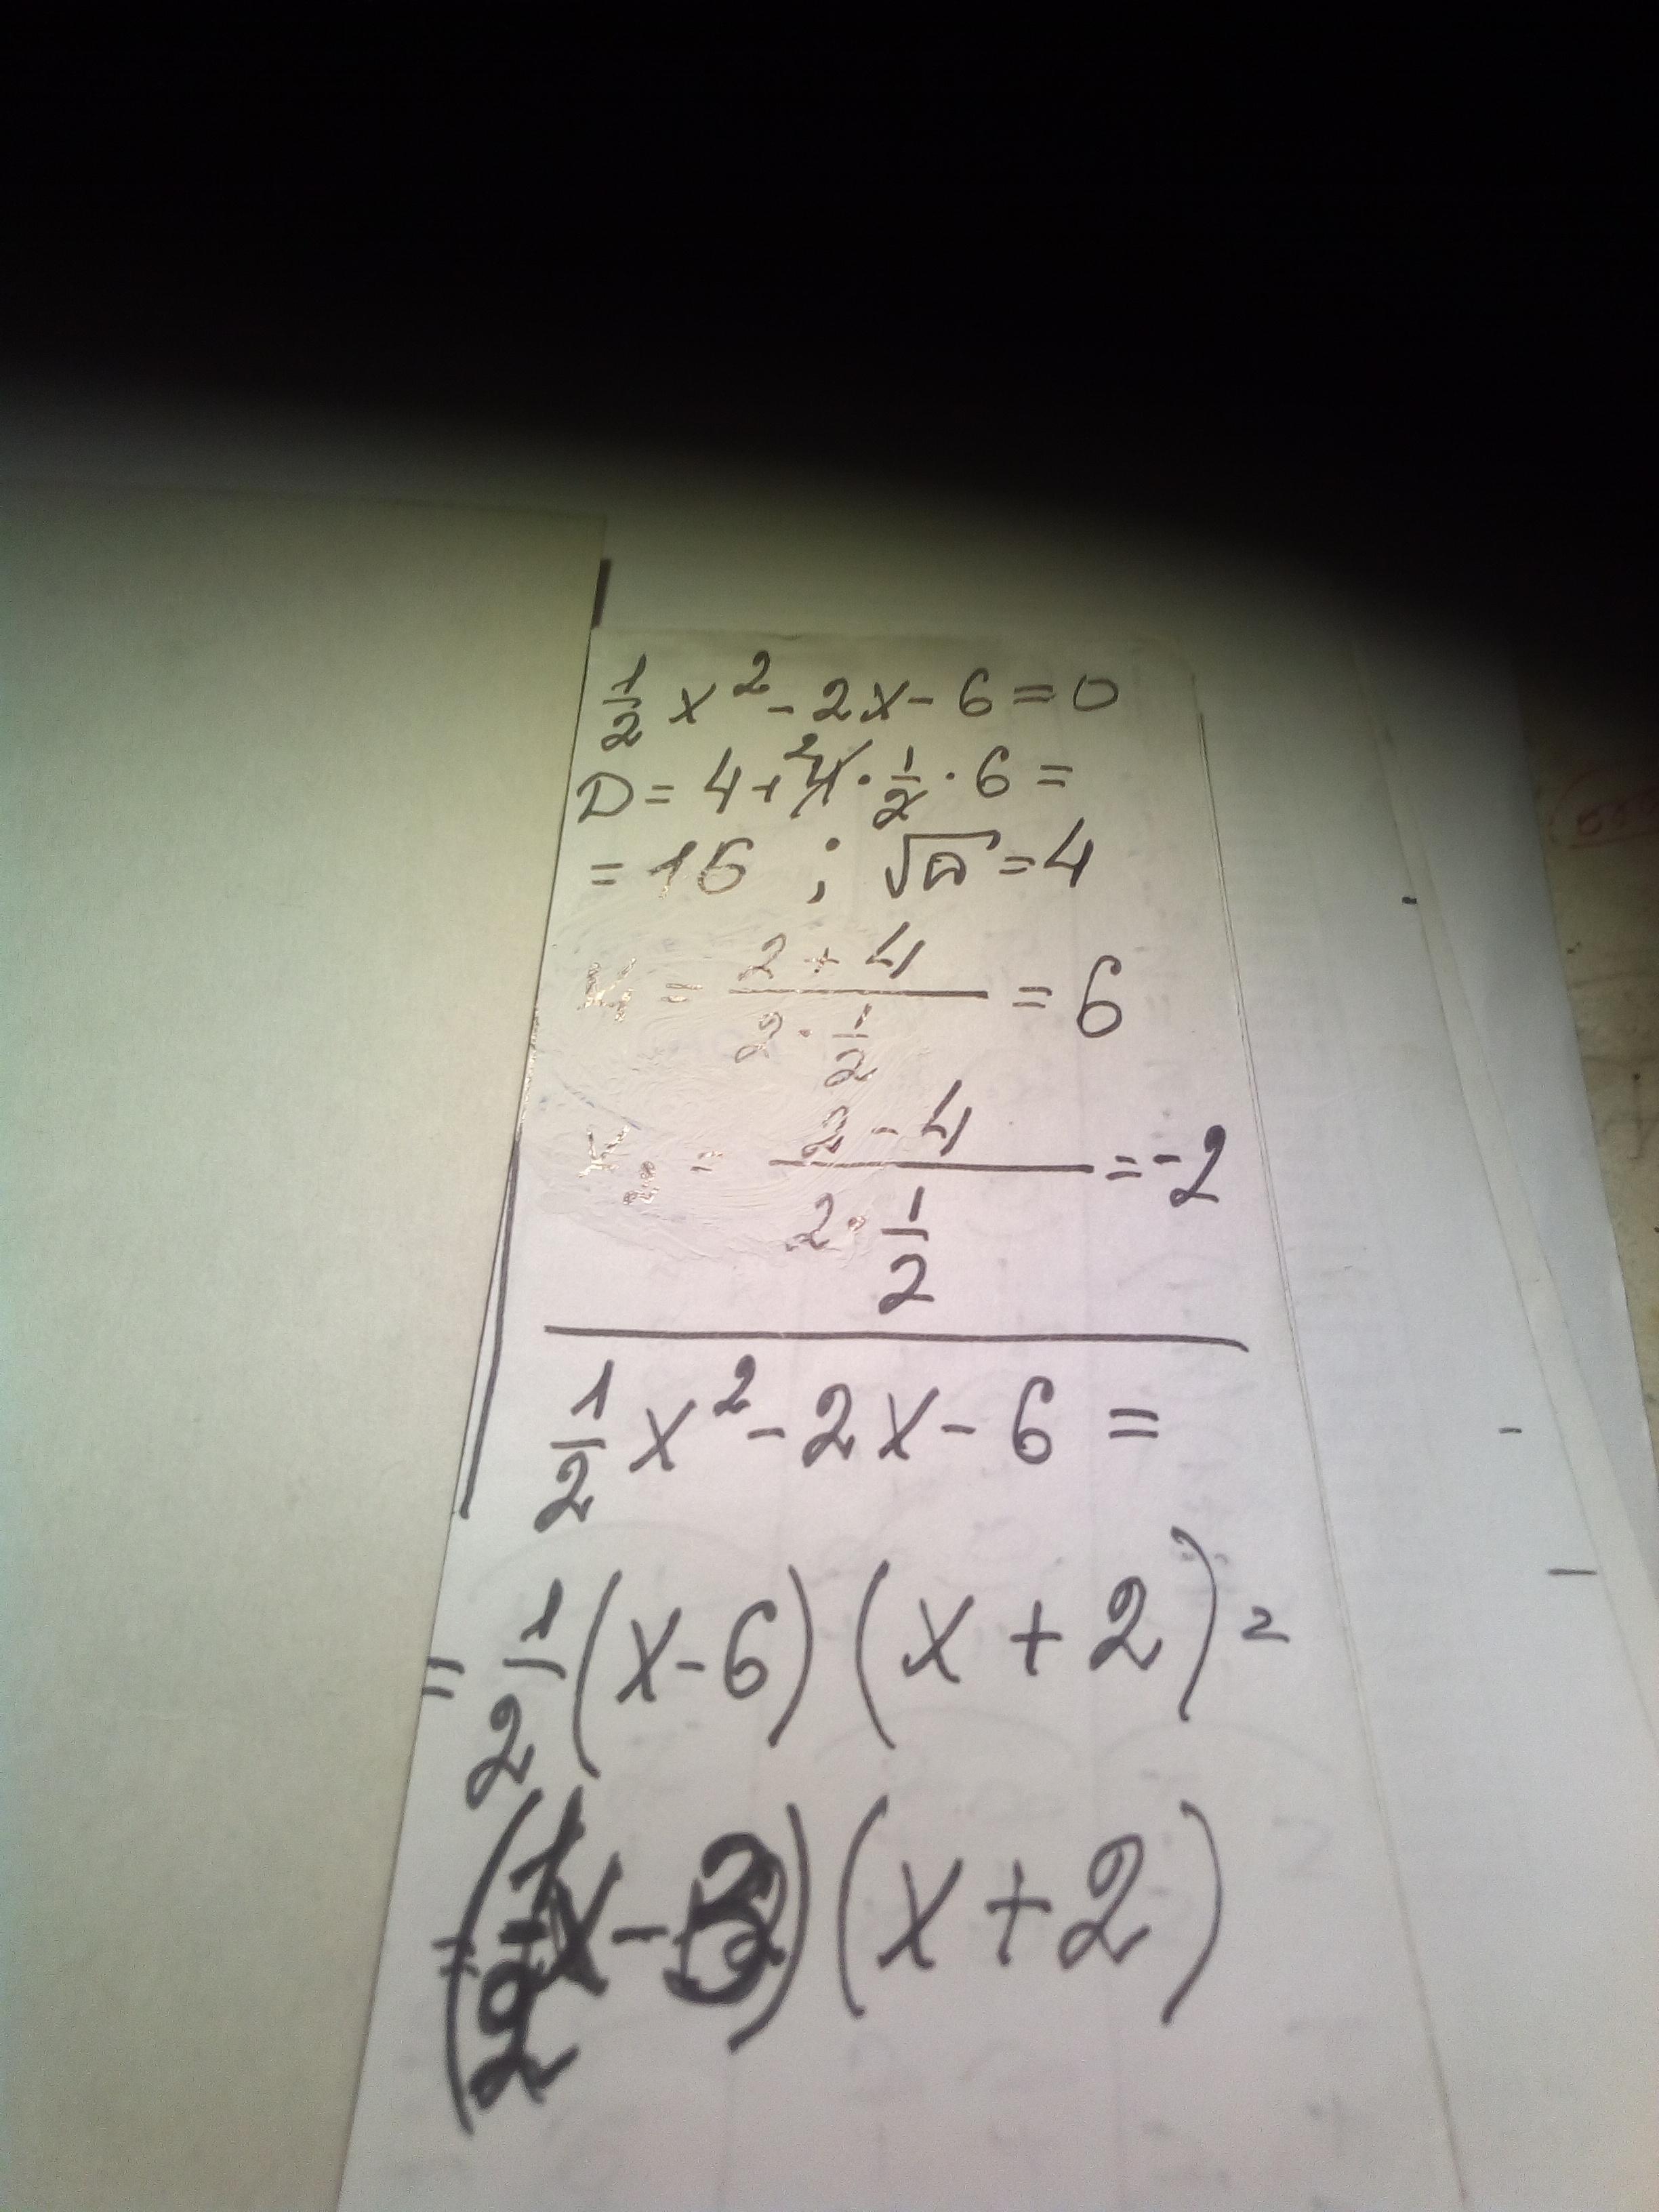 1/2 x² - 2x - 6 = 0
D = 4 + 4² · 1/2 · 6 =
= 16 ; √D = 4
x₁ = (2 + 4)/(2 · 1/2) = 6
x₂ = (2 - 4)/(2 · 1/2) = -2
1/2 x² - 2x - 6 =
= 1/2 (x - 6) (x + 2) =
= (1/2 x - 3) (x + 2)